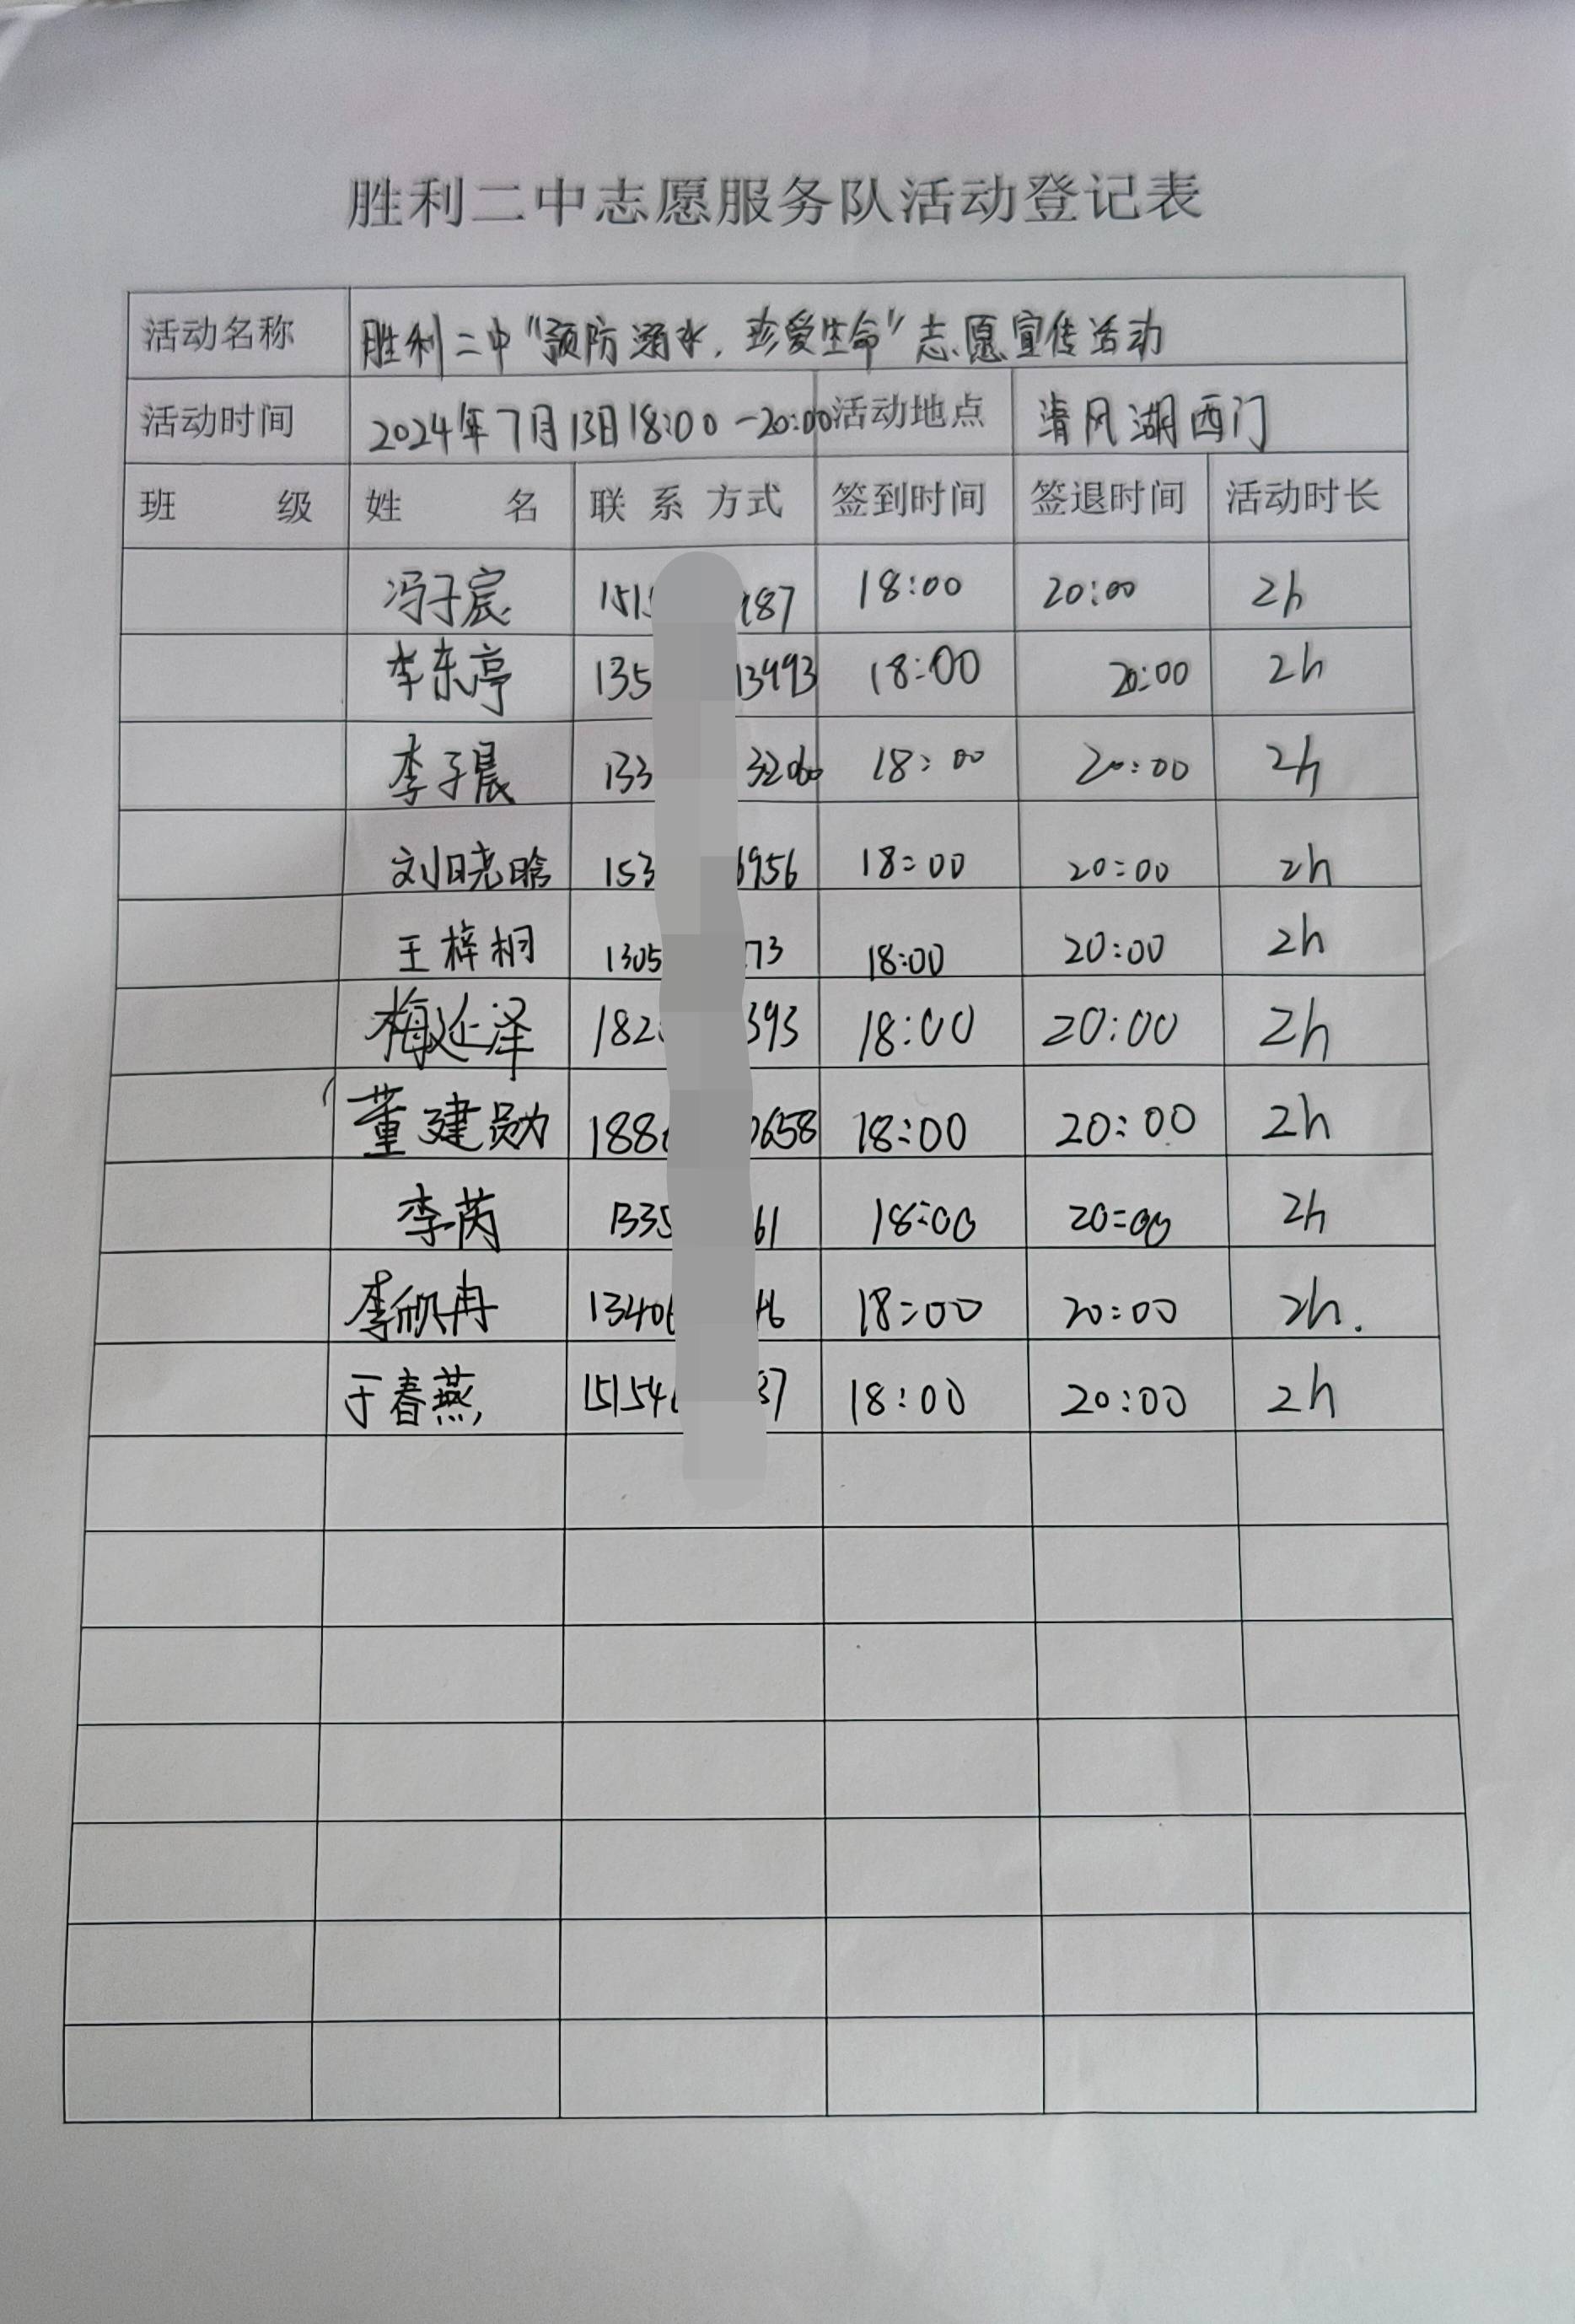 胜利二中志愿服务队活动登记表
活动名称 胜利二中“预防溺水，珍爱生命”志愿宣传活动
活动时间 2024年7月13日18:00-20:00 活动地点 清风湖西门
班级 姓名 联系方式 签到时间 签退时间 活动时长
冯子宸 151 187 18:00 20:00 2h
李东亭 135 13993 18:00 20:00 2h
李子晨 133 3206 18:00 20:00 2h
刘晓晗 153 6956 18:00 20:00 2h
王梓桐 1305 73 18:00 20:00 2h
梅延泽 182 393 18:00 20:00 2h
董建勋 188 0658 18:00 20:00 2h
李芮 1335 61 18:00 20:00 2h
李欣冉 1340 46 18:00 20:00 2h.
于春燕 15154 37 18:00 20:00 2h